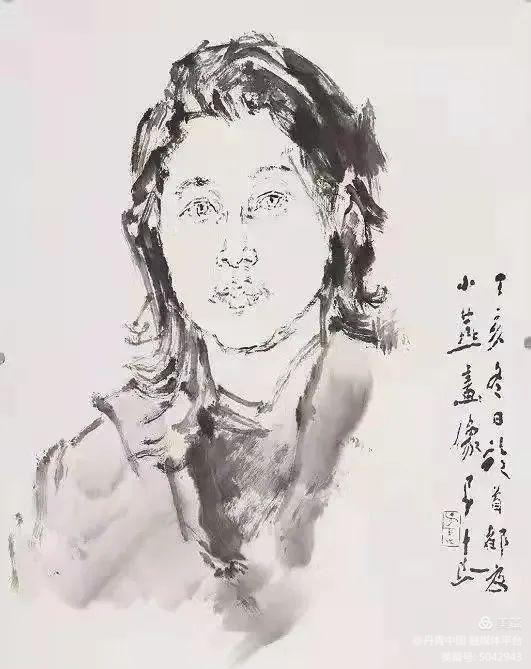 丁亥冬日於首都為
小燕畫像
@丹青中国 融媒体平台
美篇号: 5042943